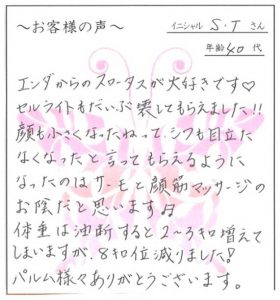 ～お客様の声～
イニシャル S・T さん
年齢40代
エンダからのスロータスが大好きです♡
セルライトもだいぶ壊してもらえました!!
顔も小さくなったねって、シワも目立た
なくなったと言ってもらえるように
なったのはサーモと顔筋マッサージの
お陰だと思います♫
体重は油断すると2～3キロ増えて
しまいますが、8キロ位減りました!
パルム様々ありがとうございます。